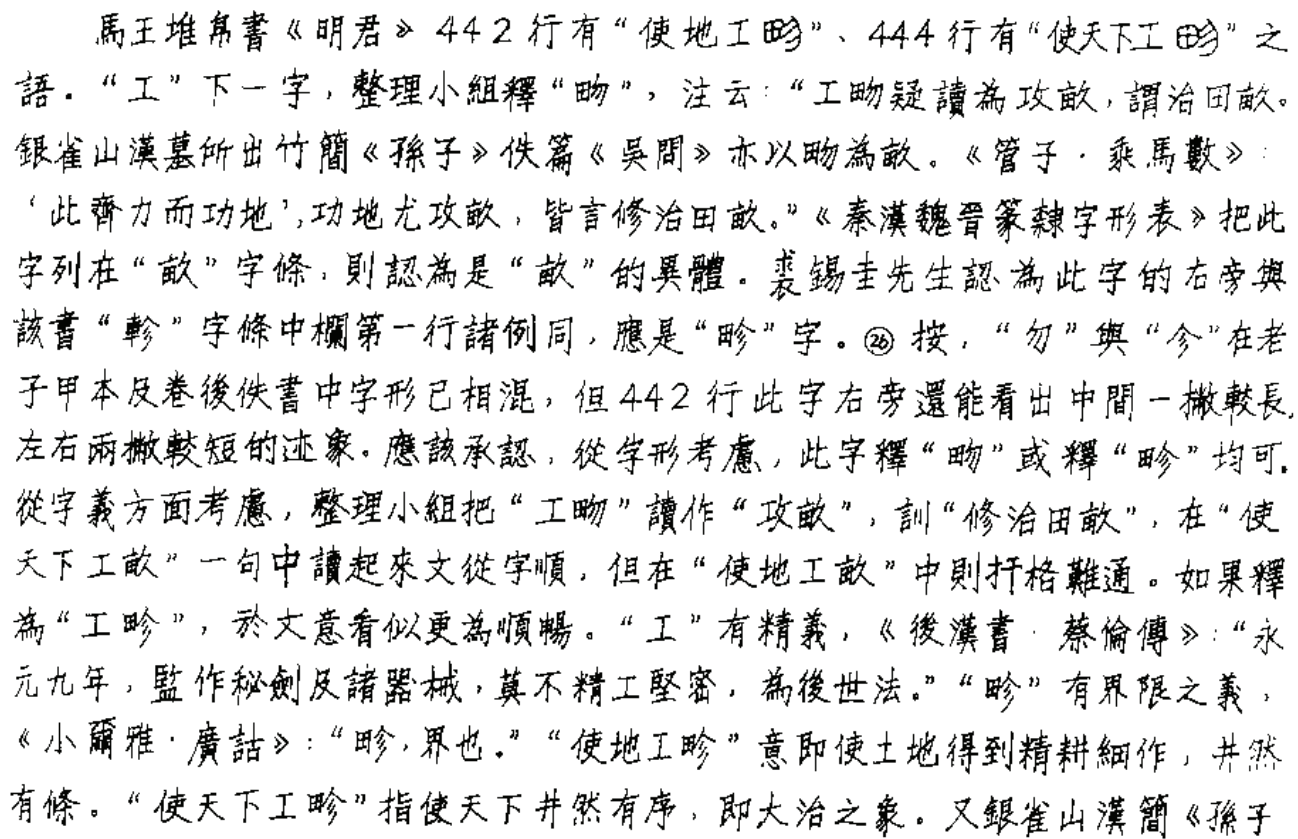 馬王堆帛書《明君》442行有“使地工畛”、444行有“使天下工畛”之
語。“工”下一字，整理小組釋“畮”，注云：“工畮疑讀為攻畝，謂治田畝。
銀雀山漢墓所出竹簡《孫子》佚篇《吳問》亦以畮為畝。《管子·乘馬數》：
‘此齊力而功地’，功地尤攻畝，皆言修治田畝。”《秦漢魏晉篆隸字形表》把此
字列在“畝”字條，則認為是“畝”的異體。裘錫圭先生認為此字的右旁與
該書“軫”字條中欄第一行諸例同，應是“畛”字。㉖按，“勿”與“㐱”在老
子甲本及卷後佚書中字形已相混，但442行此字右旁還能看出中間一撇較長，
左右兩撇較短的迹象。應該承認，從字形考慮，此字釋“畮”或釋“畛”均可。
從字義方面考慮，整理小組把“工畮”讀作“攻畝”，訓“修治田畝”，在“使
天下工畝”一句中讀起來文從字順，但在“使地工畝”中則扞格難通。如果釋
為“工畛”，於文意看似更為順暢。“工”有精義，《後漢書·蔡倫傳》：“永
元九年，監作秘劍及諸器械，莫不精工堅密，為後世法。”“畛”有界限之義，
《小爾雅·廣詁》：“畛，界也。”“使地工畛”意即使土地得到精耕細作，井然
有條。“使天下工畛”指使天下井然有序，即大治之象。又銀雀山漢簡《孫子